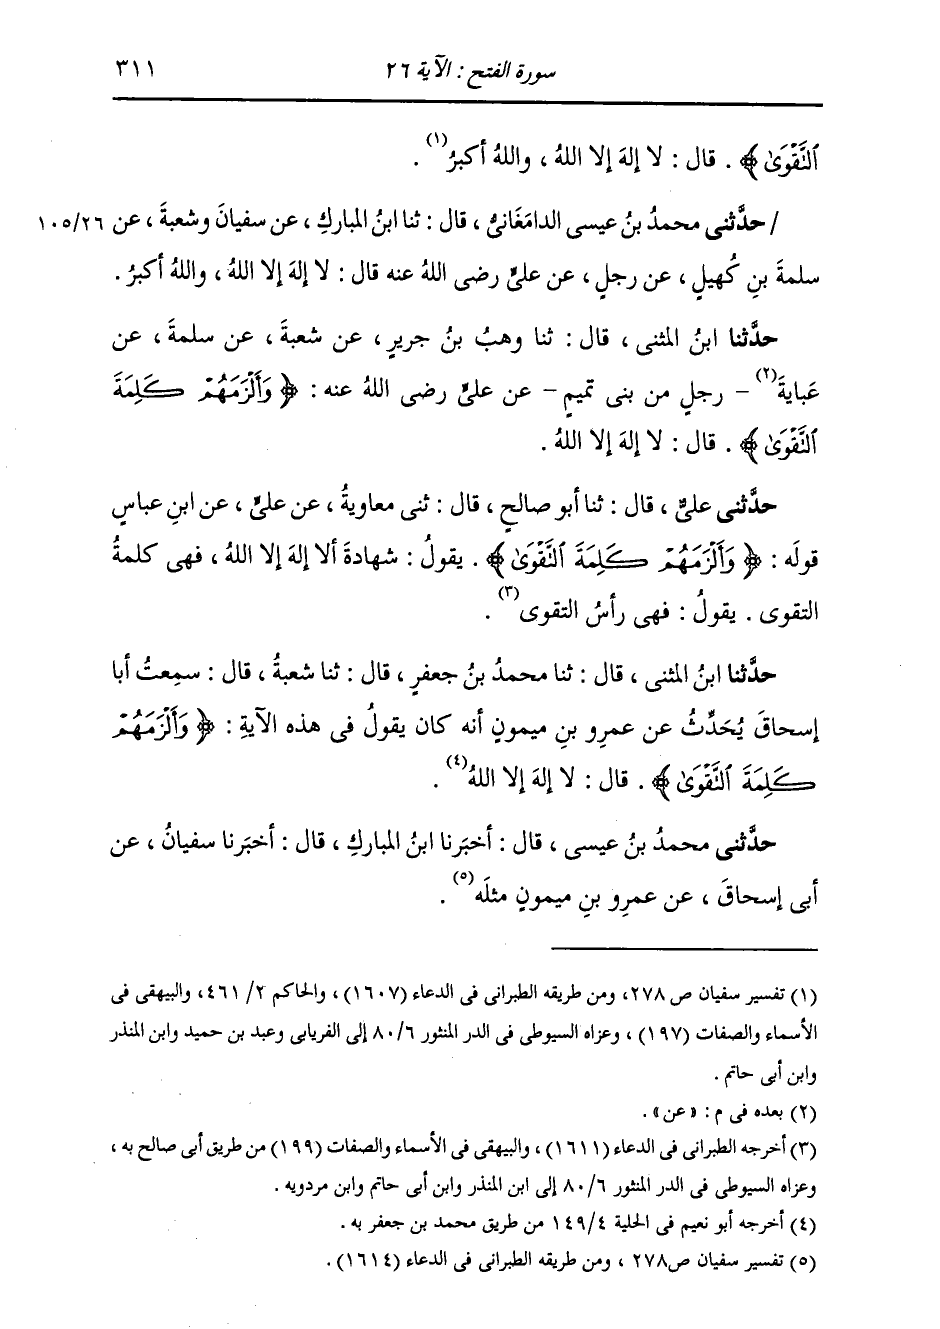 سورة الفتح : الآية ٢٦
٣١١
ٱلتَّقْوَىٰ ﴾ . قال : لا إلهَ إلا اللهُ ، واللهُ أكبرُ(١) .
/ حدَّثنى محمدُ بنُ عيسى الدامَغَانىُّ ، قال : ثنا ابنُ المباركِ ، عن سفيانَ وشعبةَ ، عن ١٠٥/٢٦
سلمةَ بنِ كُهيلٍ ، عن رجلٍ ، عن علىٍّ رضى اللهُ عنه قال : لا إلهَ إلا اللهُ ، واللهُ أكبرُ .
حدَّثنا ابنُ المثنى ، قال : ثنا وهبُ بنُ جريرٍ ، عن شعبةَ ، عن سلمةَ ، عن
عَبايةَ(٢) – رجلٍ من بنى تميمٍ – عن علىٍّ رضى اللهُ عنه : ﴿ وَأَلْزَمَهُمْ كَلِمَةَ
ٱلتَّقْوَىٰ ﴾ . قال : لا إلهَ إلا اللهُ .
حدَّثنى علىٌّ ، قال : ثنا أبو صالحٍ ، قال : ثنى معاويةُ ، عن علىٍّ ، عن ابنِ عباسٍ
قولَه : ﴿ وَأَلْزَمَهُمْ كَلِمَةَ ٱلتَّقْوَىٰ ﴾ . يقولُ : شهادةَ ألا إلهَ إلا اللهُ ، فهى كلمةُ
التقوى . يقولُ : فهى رأسُ التقوى(٣) .
حدَّثنا ابنُ المثنى ، قال : ثنا محمدُ بنُ جعفرٍ ، قال : ثنا شعبةُ ، قال : سمِعتُ أبا
إسحاقَ يُحَدِّثُ عن عمرِو بنِ ميمونٍ أنه كان يقولُ فى هذه الآيةِ : ﴿ وَأَلْزَمَهُمْ
كَلِمَةَ ٱلتَّقْوَىٰ ﴾ . قال : لا إلهَ إلا اللهُ(٤) .
حدَّثنى محمدُ بنُ عيسى ، قال : أخبَرنا ابنُ المباركِ ، قال : أخبَرنا سفيانُ ، عن
أبى إسحاقَ ، عن عمرِو بنِ ميمونٍ مثلَه(٥) .
(١) تفسير سفيان ص ٢٧٨، ومن طريقه الطبرانى فى الدعاء (١٦٠٧) ، والحاكم ٢/ ٤٦١، والبيهقى فى
الأسماء والصفات (١٩٧) ، وعزاه السيوطى فى الدر المنثور ٨٠/٦ إلى الفريابى وعبد بن حميد وابن المنذر
وابن أبى حاتم .
(٢) بعده فى م : «عن» .
(٣) أخرجه الطبرانى فى الدعاء (١٦١١) ، والبيهقى فى الأسماء والصفات (١٩٩) من طريق أبى صالح به ،
وعزاه السيوطى فى الدر المنثور ٨٠/٦ إلى ابن المنذر وابن أبى حاتم وابن مردويه .
(٤) أخرجه أبو نعيم فى الحلية ١٤٩/٤ من طريق محمد بن جعفر به .
(٥) تفسير سفيان ص٢٧٨ ، ومن طريقه الطبرانى فى الدعاء (١٦١٤) .